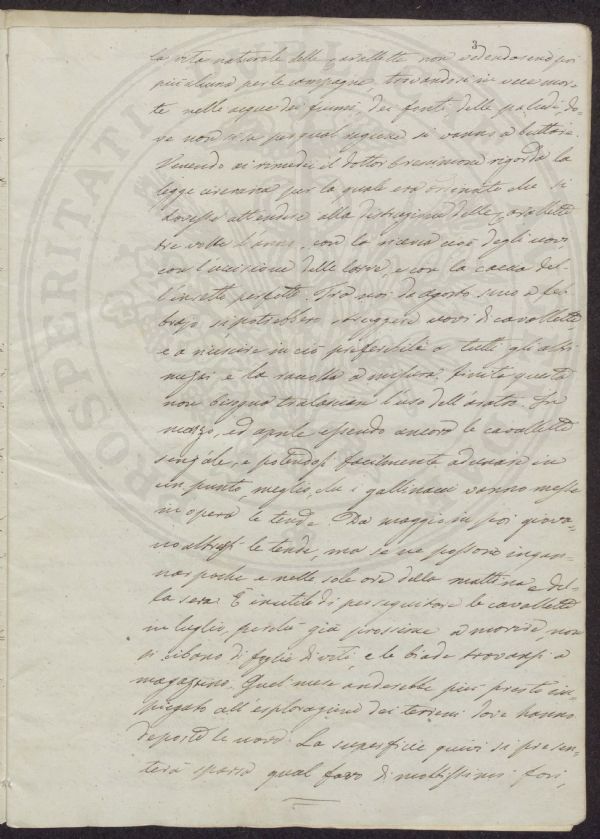 3
la vita naturale delle cavallette non vedendosene poi
più alcuna per le campagne, trovandosi in vece mor-
te nelle acque dei fiumi, dei fonti, delle paludi do-
ve non si sa per qual ragione si vanno a buttare.
Venendo ai rimedi il dottor Bressimone ricorda la
legge cirenaica per la quale era ordinato che si
dovesse attendere alla distruzione delle cavallette
tre volte l'anno, con la ricerca cioè degli uovi
con l'uccisione delle larve, e con la caccia del-
l'insetto perfetto. Tra noi da agosto sino a feb-
brajo, si potrebbero distruggere uovi di cavallette,
e a riuscire in ciò preferibile a tutti gli altri
mezzi è la raccolta a misura. Finita questa
non bisogna tralasciare l'uso dell'aratro. In
marzo, ed aprile essendo ancora le cavallette
senz'ale, e potendosi facilmente adunare in
un punto, meglio che i gallinacei vanno messe
in opera le tende. Da maggio in poi giova-
no altresì le tende, ma se ne possono ingan-
nar poche e nelle sole ore della mattina e del-
la sera. È inutile di perseguitare le cavallette
in luglio, perchè già prossime a morire, non
si cibano di foglie di viti, e le biade trovansi a
magazzino. Quel mese anderebbe più presto im-
piegato all'esplorazione dei terreni dove hanno
deposto le uova. La superficie quivi si presen-
terà sparsa qual favo di moltissimi fori,
PROSPERITATI PUBLICAE